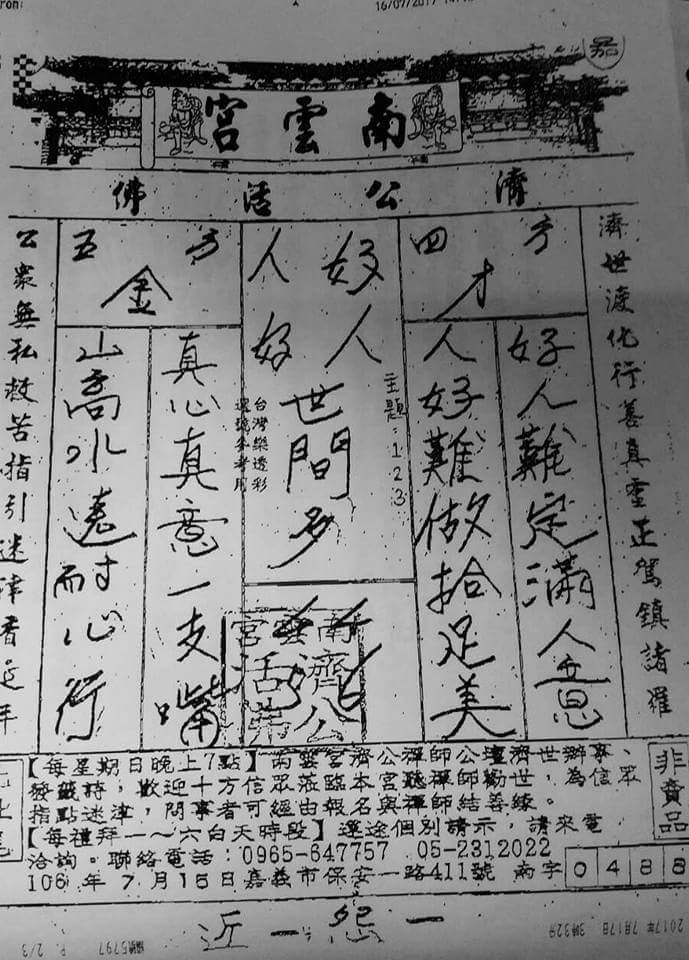 16/07/2017
南雲宮
濟公活佛
濟世渡化行善真靈正駕鎮諸羅
四方
才
好人難定滿人意
人好難做拾足美
好人
人好
世間多
主題:123
台灣樂透彩
選號參考用
五方
金
真心真意一支嘴
山高水遠耐心行
公眾無私救苦指引迷津香延年
南雲宮
濟公
活
【每星期日晚上7點】南雲宮濟公禪師公壇濟世辦事、
發籤詩,歡迎十方信眾蒞臨本宮聽禪師勸世,為信眾
指點迷津,問事者可經由報名與禪師結善緣。
【每禮拜一~六白天時段】遠途個別請示,請來電
洽詢。聯絡電話:0965-647757 05-2312022
106 年 7 月 16 日 嘉義市保安一路411號 南字 0488
非賣品
2017年 7月17日
P. 2/3